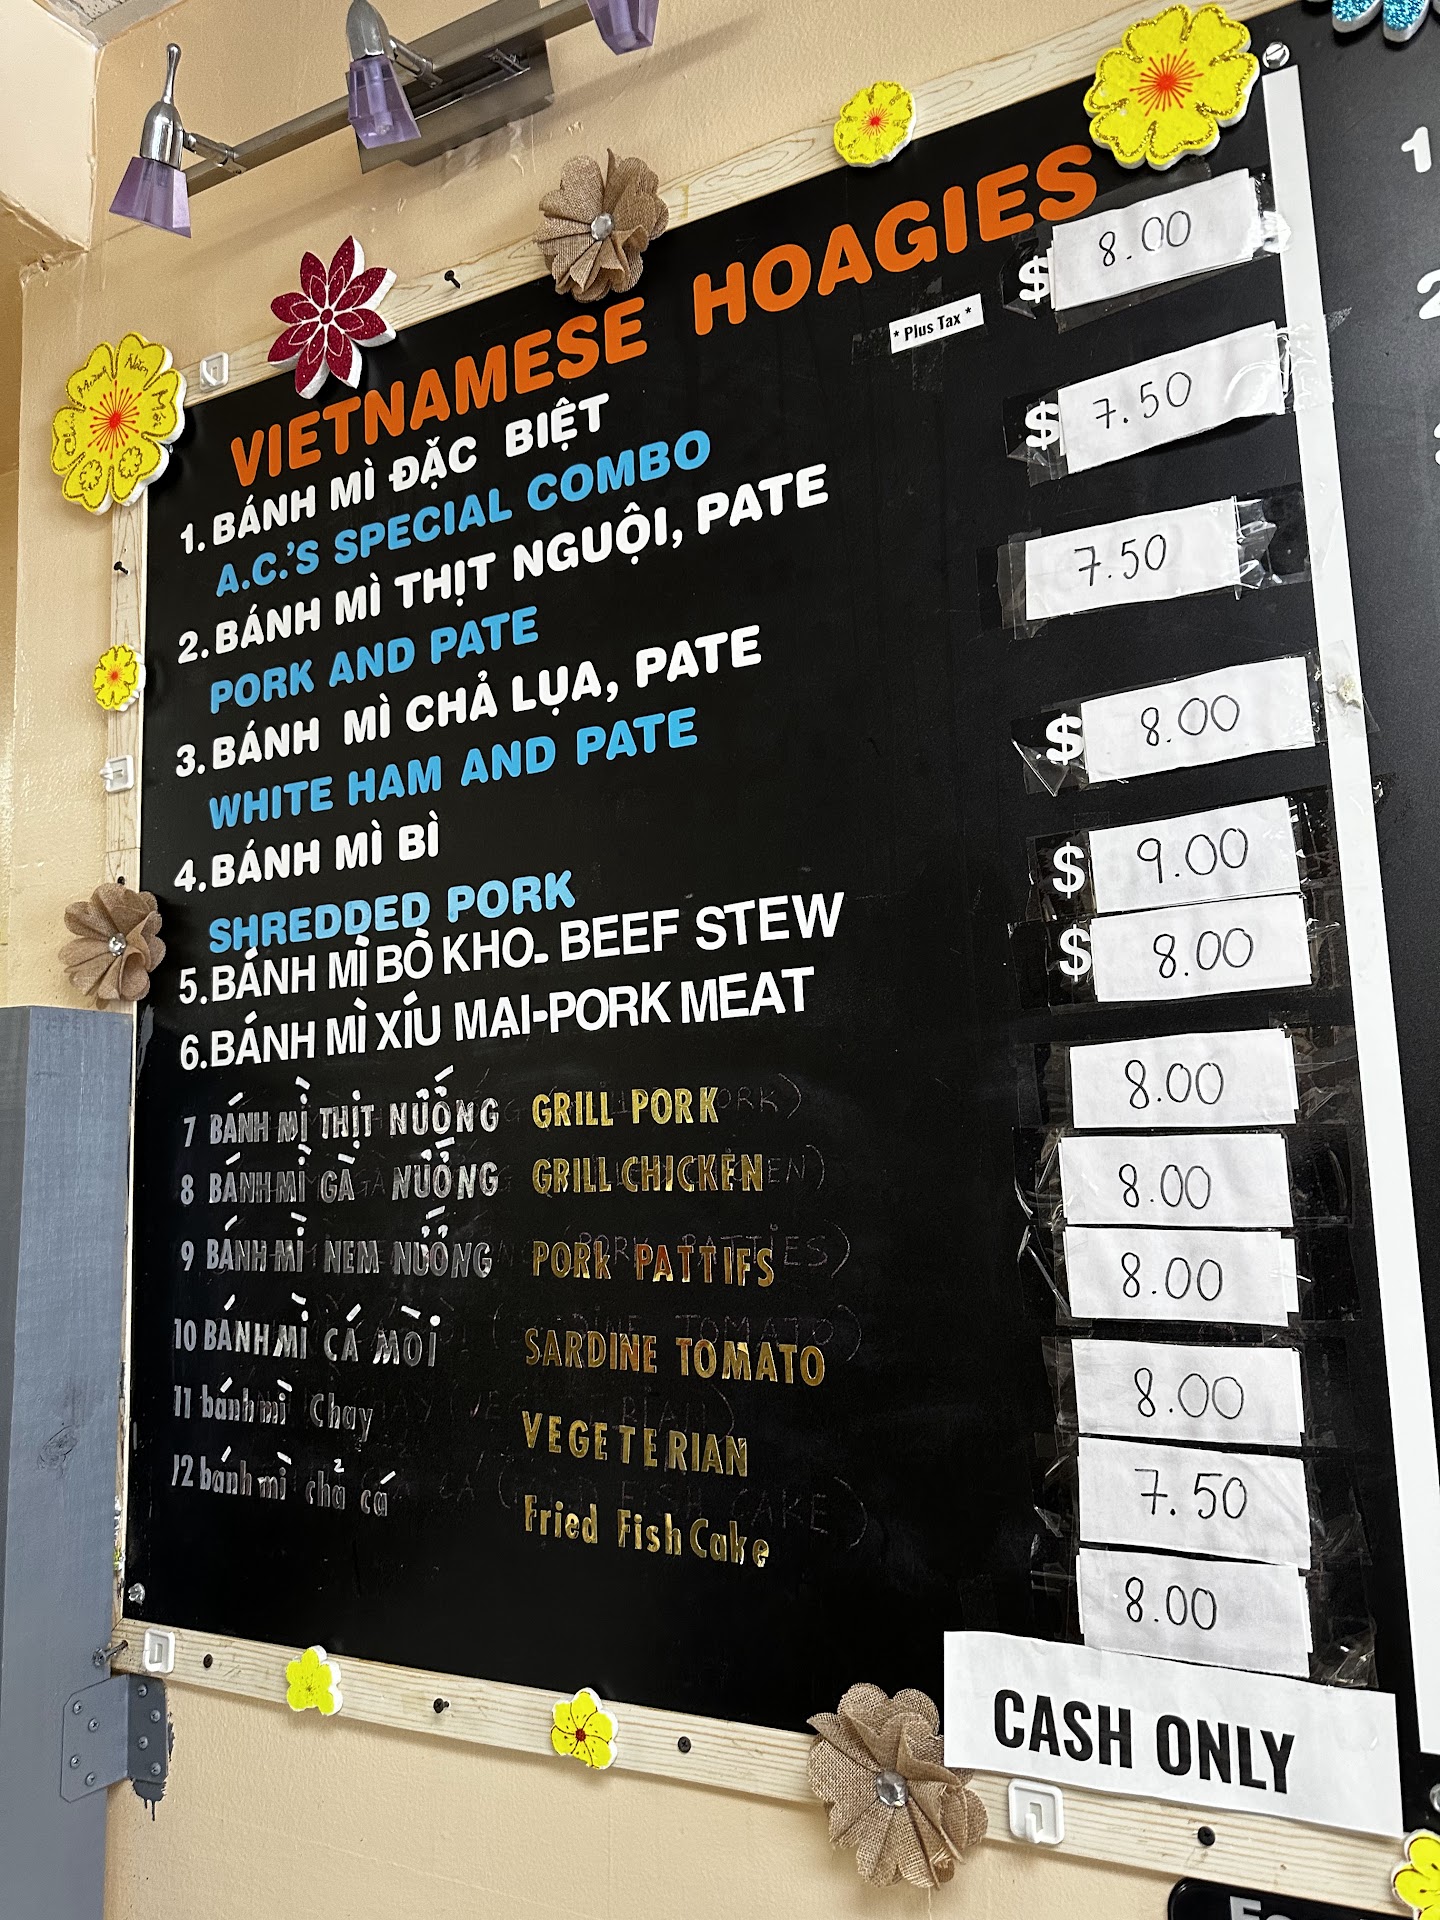 VIETNAMESE HOAGIES
* Plus Tax *
1. BÁNH MÌ ĐẶC BIỆT $ 8.00
A.C.'S SPECIAL COMBO
2. BÁNH MÌ THỊT NGUỘI, PATE $ 7.50
PORK AND PATE
3. BÁNH MÌ CHẢ LỤA, PATE 7.50
WHITE HAM AND PATE
4. BÁNH MÌ BÌ $ 8.00
SHREDDED PORK
5. BÁNH MÌ BÒ KHO- BEEF STEW $ 9.00
6. BÁNH MÌ XÍU MẠI-PORK MEAT $ 8.00
7 BÁNH MÌ THỊT NƯỚNG GRILL PORK 8.00
8 BÁNH MÌ GÀ NƯỚNG GRILL CHICKEN 8.00
9 BÁNH MÌ NEM NƯỚNG PORK PATTIES 8.00
10 BÁNH MÌ CÁ MÒI SARDINE TOMATO 8.00
11 bánh mì Chay VEGETERIAN 7.50
12 bánh mì chả cá Fried Fish Cake 8.00
CASH ONLY